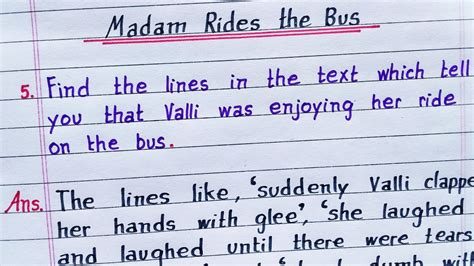 Madam Rides the Bus
5. Find the lines in the text which tell
you that Valli was enjoying her ride
on the bus.
Ans. The lines like, 'suddenly Valli clappe
her hands with glee', 'she laughed
and laughed until there were tears
dumb with